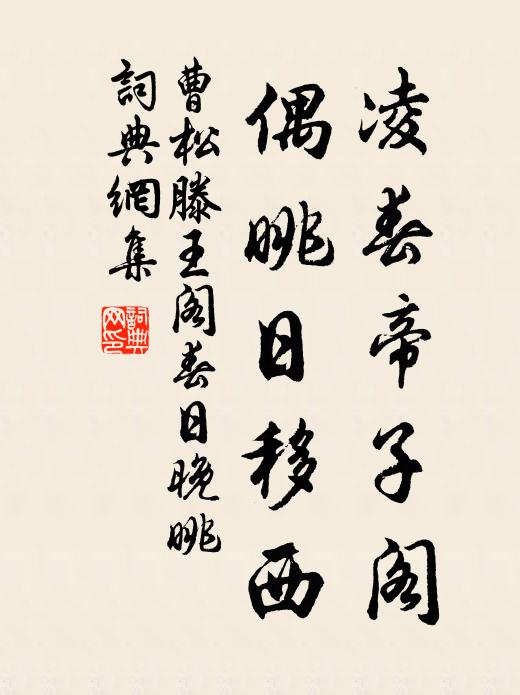 凌春帝子阁
偶眺日移西
曹松滕王阁春日晚眺
詞典網集
詞典网印